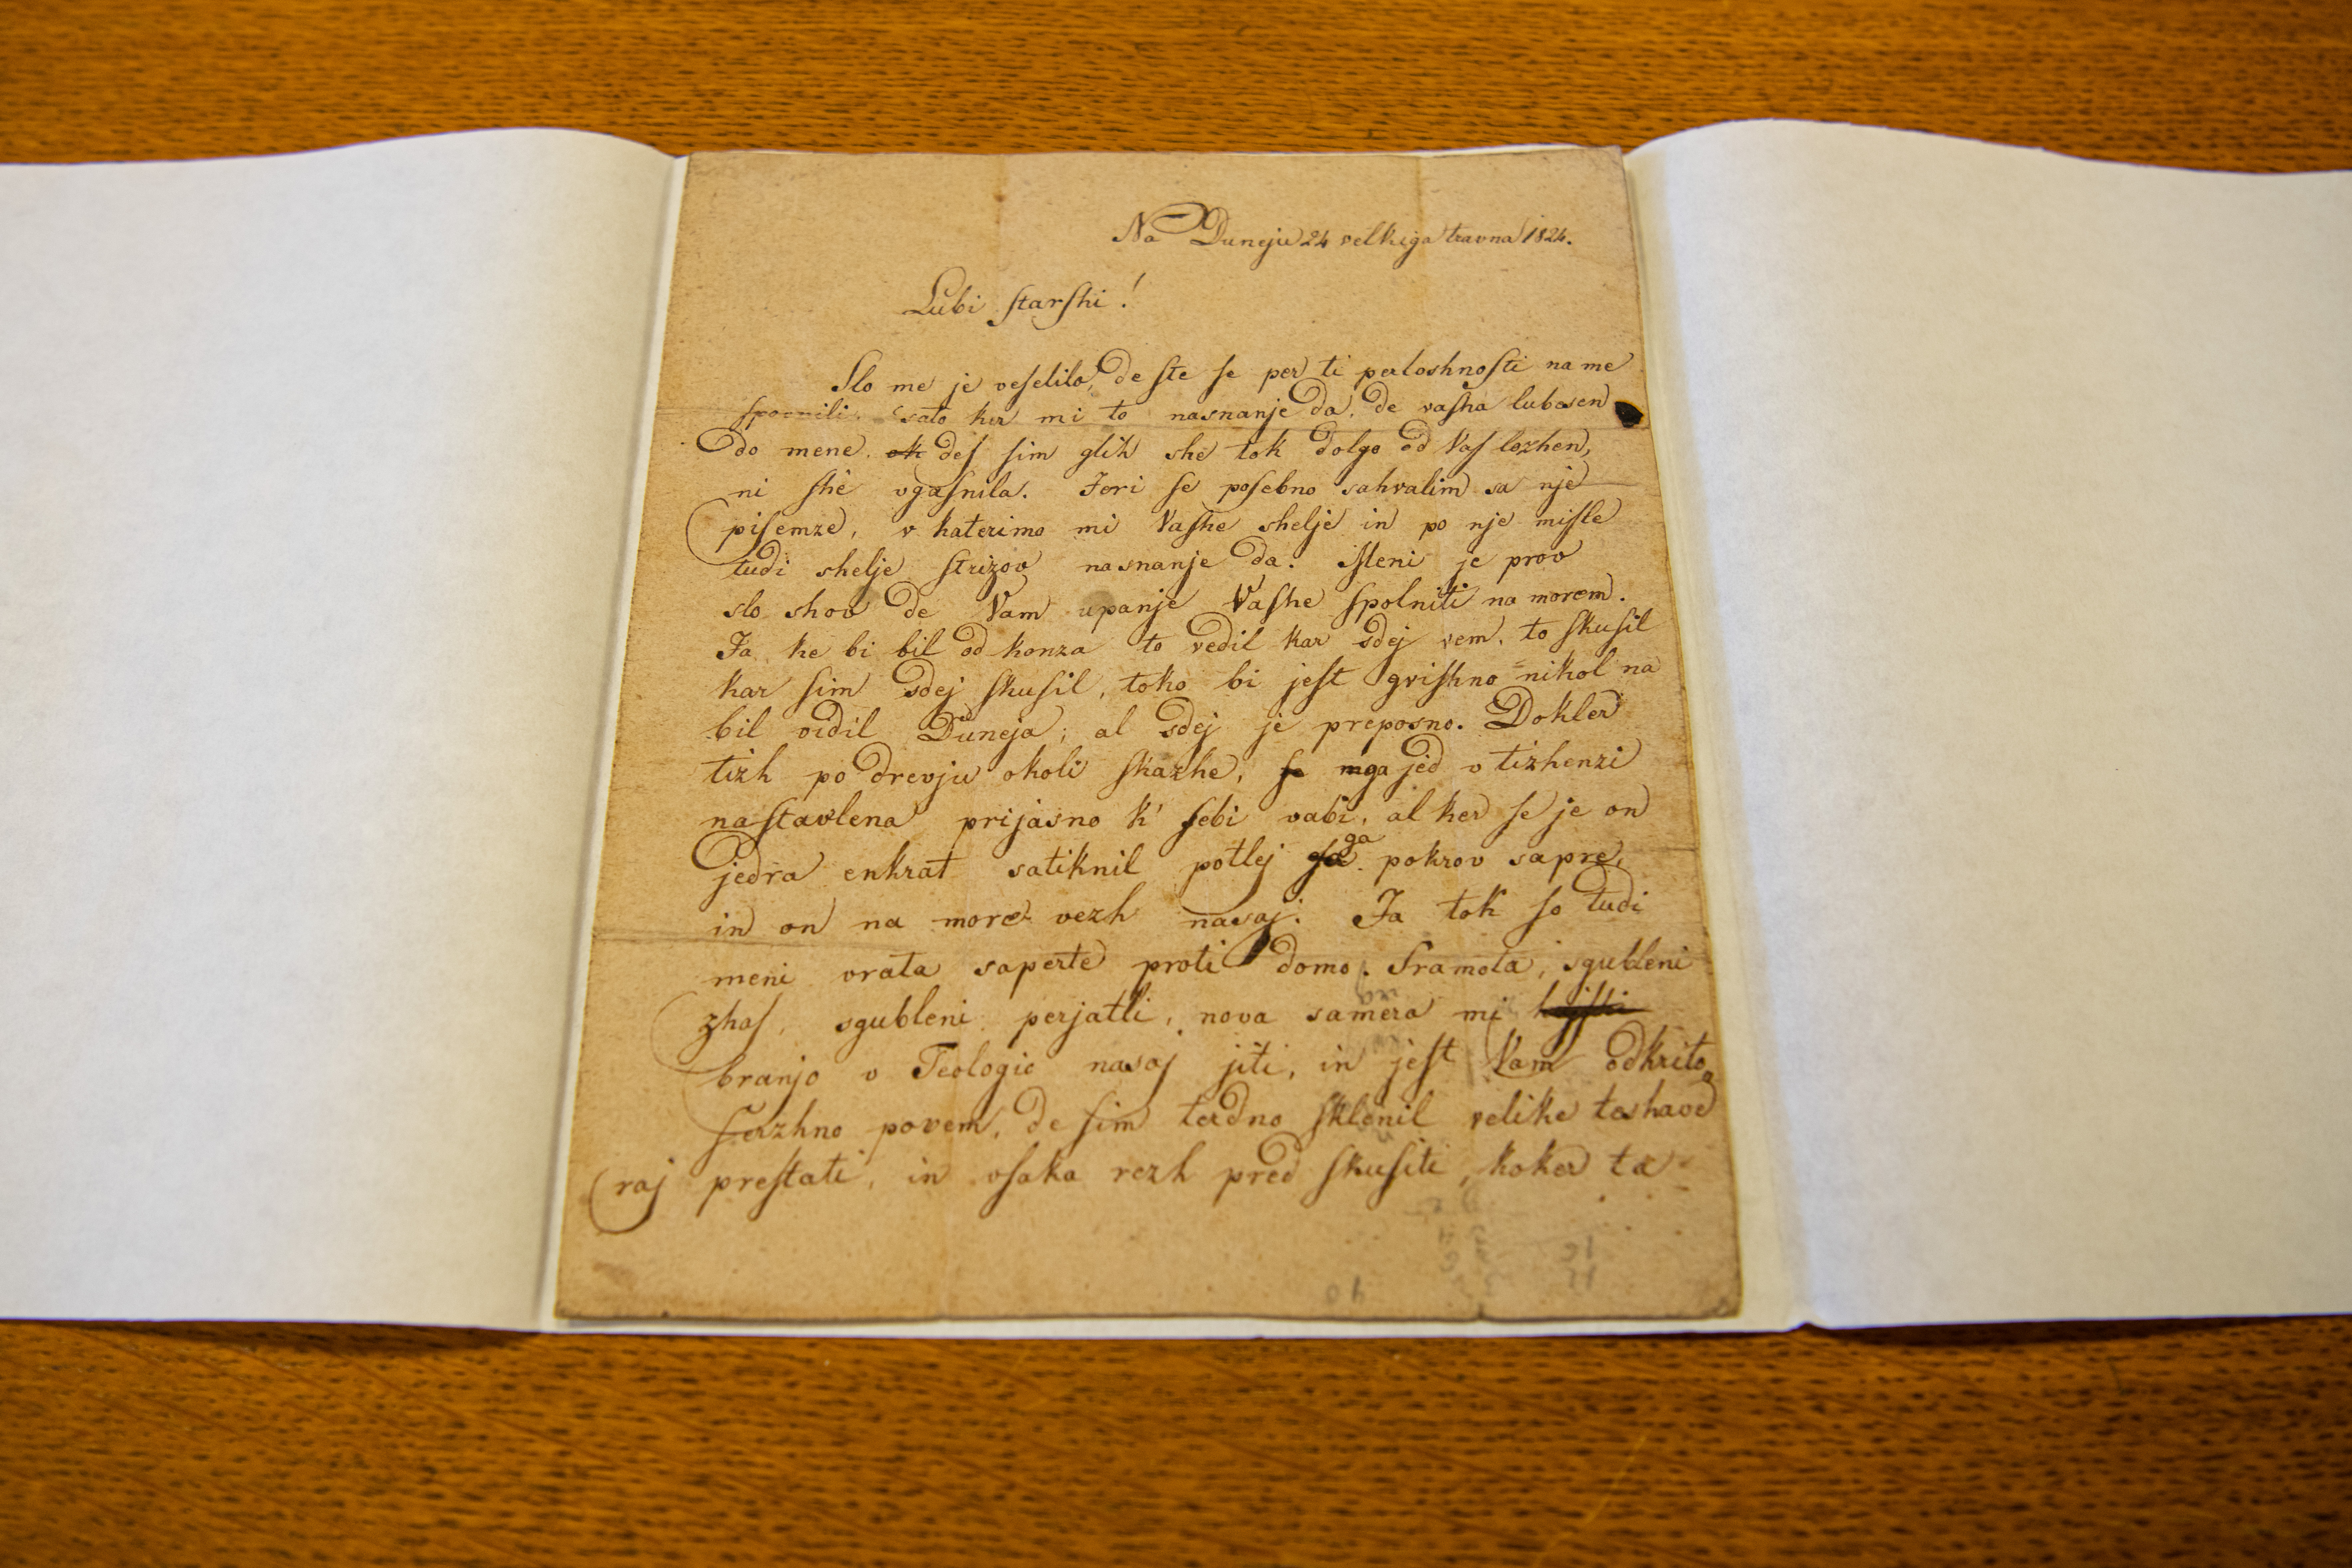 Na Duneju 24 velkiga travna 1824.
Lubi ſtarſhi!
Slo me je veſelilo, de ſte ſe per ti perloshnoſti na me
ſpomnili. sato ker mi to nasnanje da, de vaſha lubesen
do mene, deſ ſim glih she tok dolgo od Vaſ lozhen,
ni ſhe vgaſnila. Jeri ſe poſebno sahvalim sa nje
piſemze, v katerimo mi Vaſhe shelje in po nje miſle
tudi shelje ſtrizov nasnanje da. Meni je prov
slo shov de Vam upanje Vaſhe ſpolniti na morem.
Ja ke bi bil od konza to vedil kar sdej vem, to ſkuſil
kar ſim sdej ſkuſil, toko bi jeſt griſhno nikol na
bil vidil Duneja; al sdej je preposno. Dokler
tizh po drevju okoli ſkazhe, ga jed v tizhenzi
naſtavlena prijasno k' ſebi vabi, al ker ſe je on
jedra enkrat satiknil potlej ga pokrov sapre,
in on na more vezh nasaj. Ja tok ſo tudi
meni vrata saperte proti domo. Sramota, sgubleni
zhaſ, sgubleni perjatli, nova samera mi
branjo v Teologio nasaj jiti, in jeſt Vam odkrito
ſerzhno povem, de ſim terdno ſklenil velike teshave
raj preſtati, in vſaka rezh pred ſkuſiti, koker ta